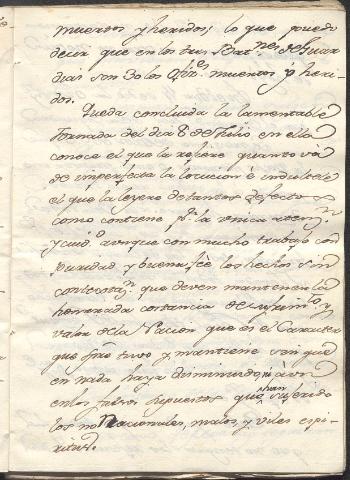 muertos y heridos; lo que puedo
decir que en los tres Bat.nes de Guar
dias son 30 los ofiz.s muertos ó heri-
dos.
Queda concluida la lamentable
Jornada del dia 8 de Julio en ella
conoce el que la refiere quanto vá
de imperfecta la locucion é indultele
el que la leyere de tantos defectos
como contiene p.r la unica atenz.n
y cuid.o aunque con mucho trabajo con
puridad y buena feé los hechos sin
contextaz.n que deven mantener la
honrrada constancia de sufrim.to y
valor de la Nacion que es el Caracter
que smpre tuvo y mantiene sin que
en nada haya disminuido, ni á vn
en los falsos supuestos que han referido
los no Nacionales, malos, y viles espi-
ritus.